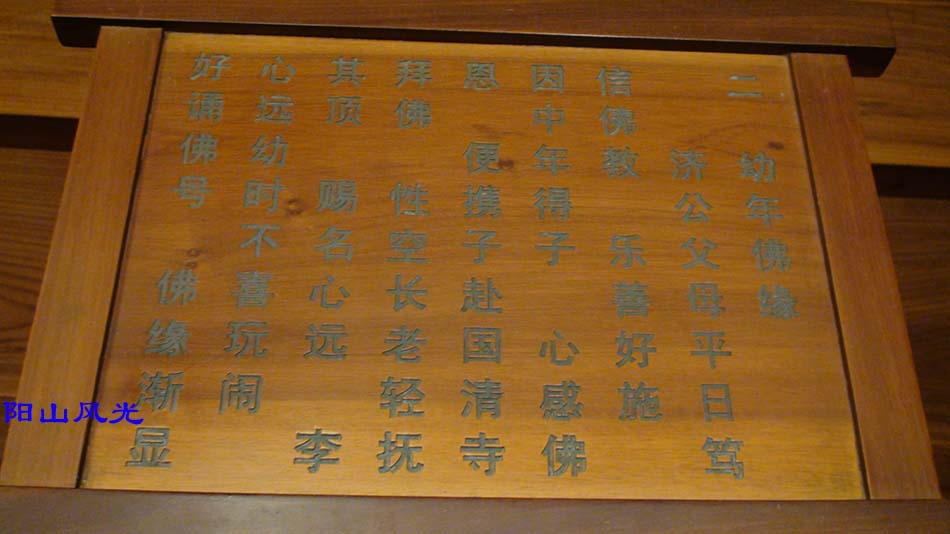 二 幼年佛缘
济公父母平日笃
信佛教 乐善好施
因中年得子 心感佛
恩 便携子赴国清寺
拜佛 性空长老轻抚
其顶 赐名心远 李
心远幼时不喜玩闹
好诵佛号 佛缘渐显
阳山风光